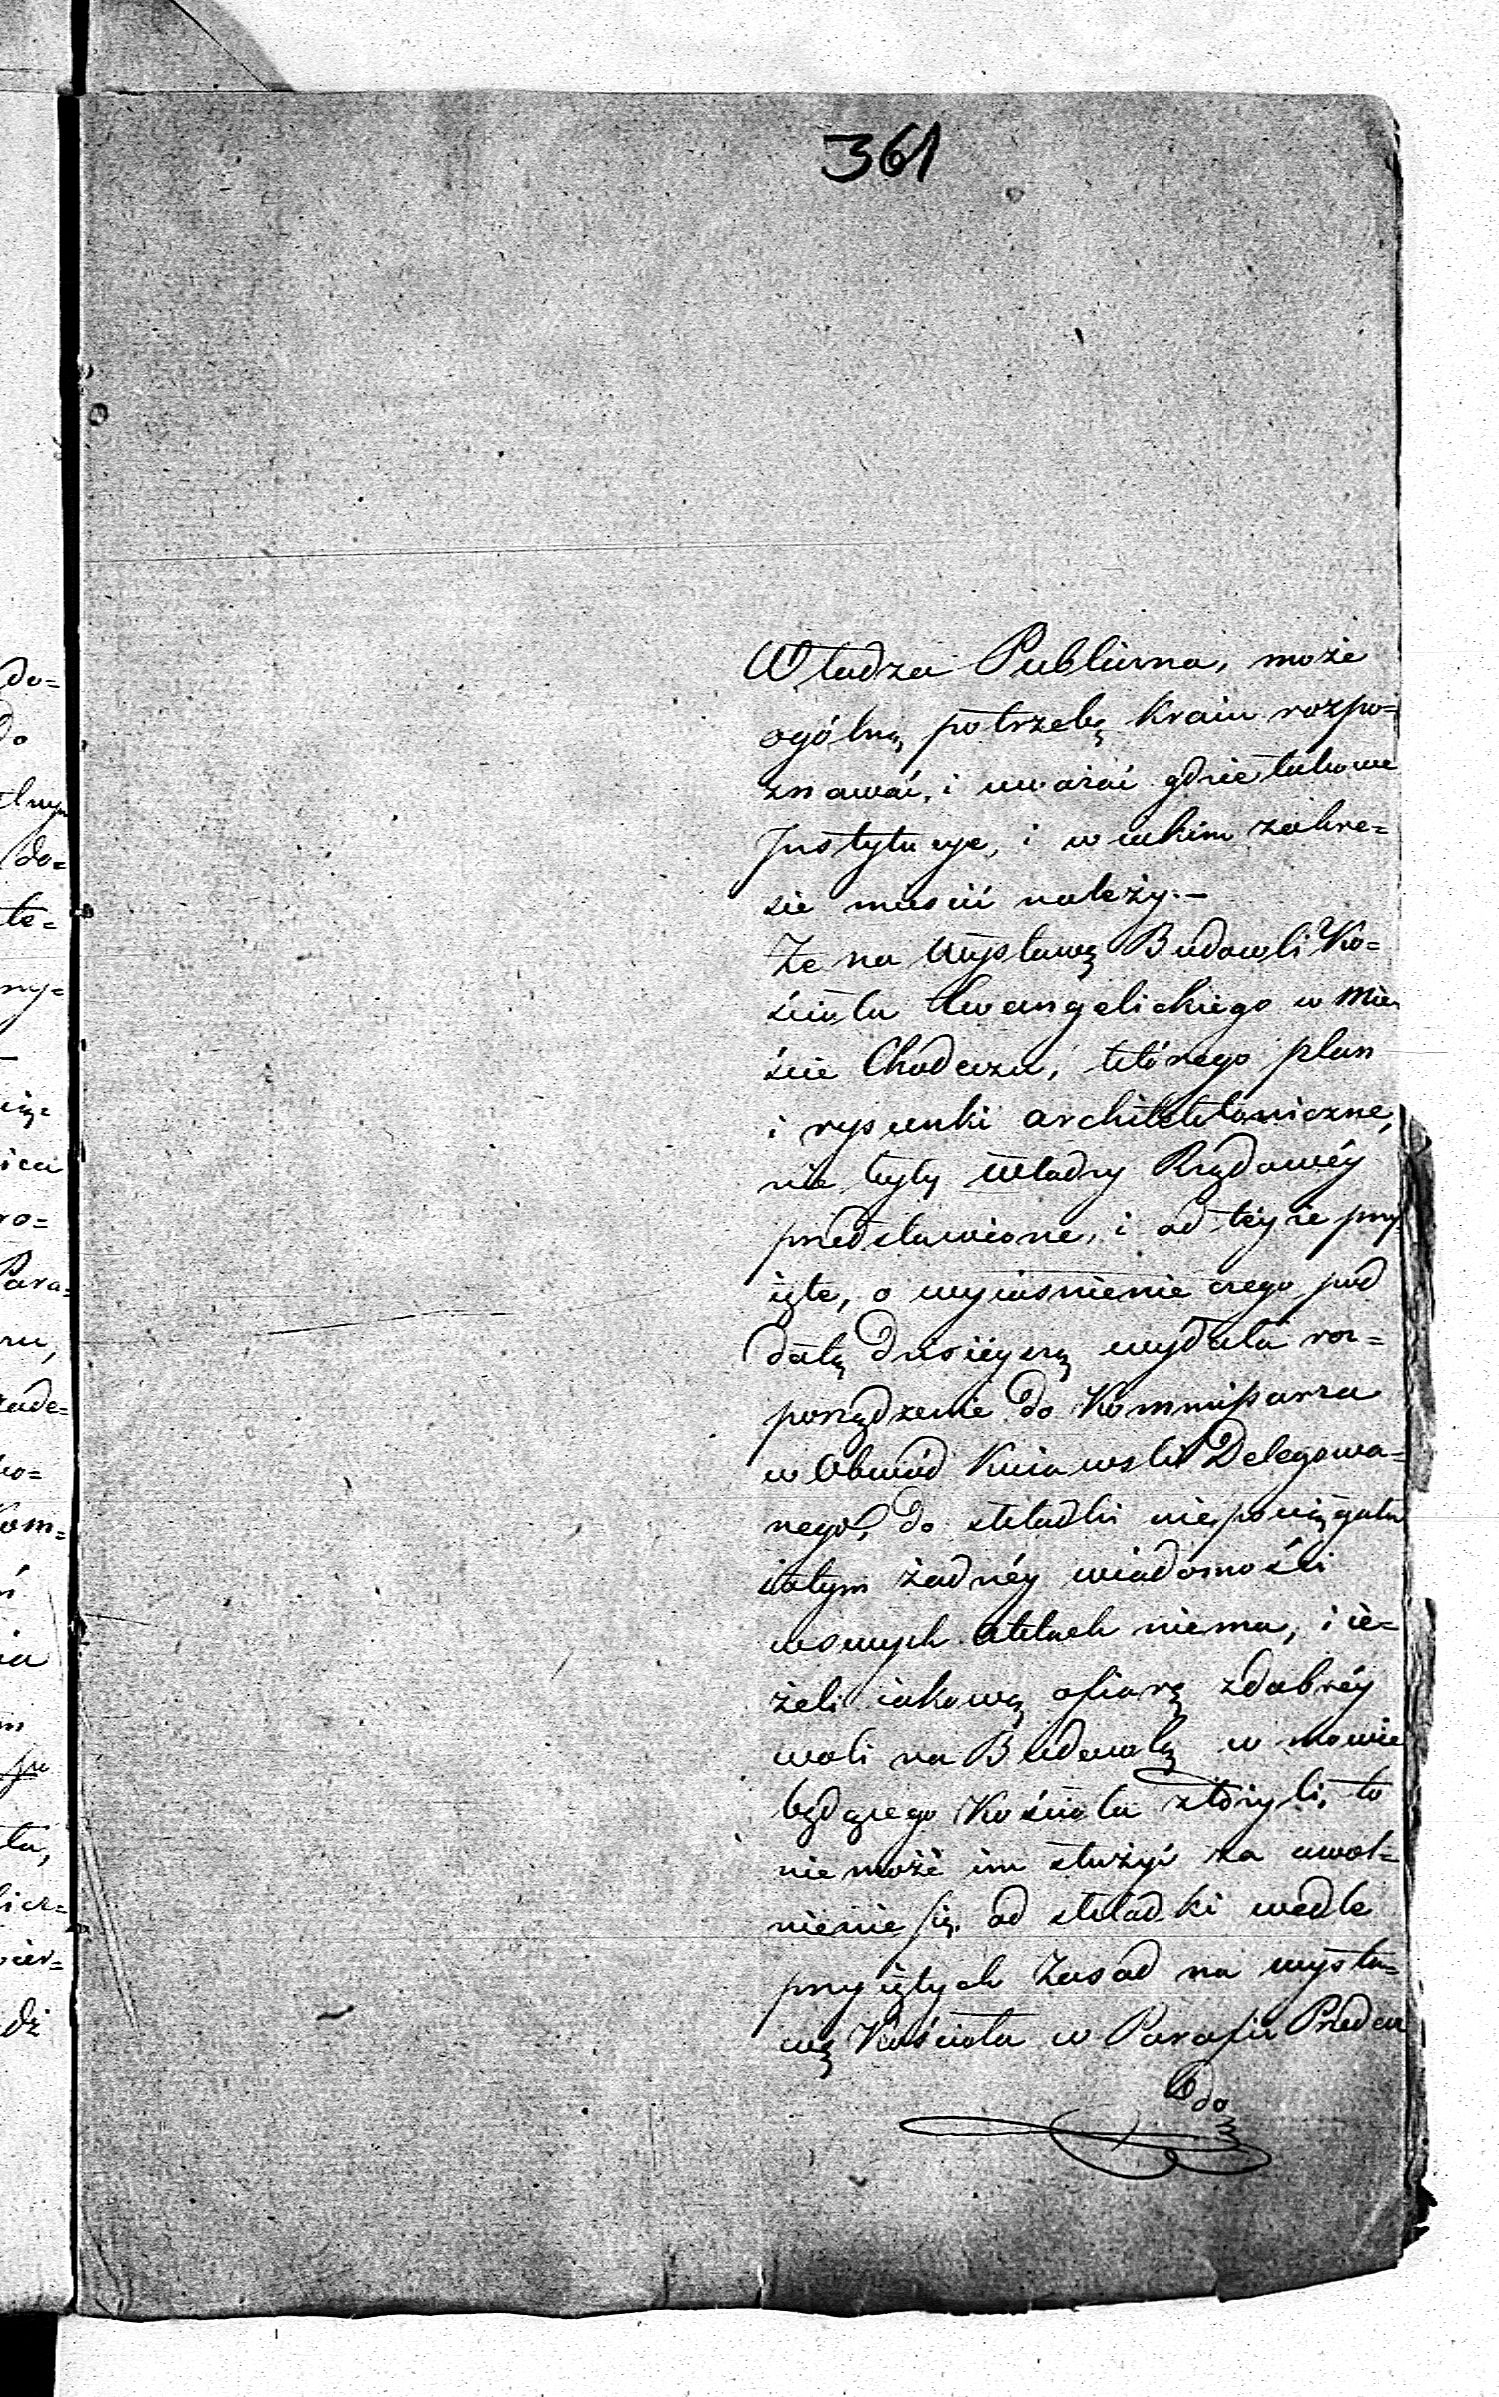 361
Władza Publiczna, może
ogólną potrzebę Kraiu rozpo=
znawać, i uważać gdzie takowe
Instytucye, i w iakim zakre=
sie mieścić należy. –
Że na Wystawę Budowli Ko=
ścioła Ewangelickiego w Mie
ście Chodczu, którego plan
i rysunki architektoniczne,
nie były Władzy Rządowéy
przedstawione, i od téyże przy
ięte, o wyiaśnienie czego pod
datą dzisieyszą wydała roz=
porządzenie do Kommissarza
w Obwód Kuiawski Delegowa=
nego, do składki nie pociągała
iotym żadnéy wiadomości
wswych aktach niema, i ie=
żeli iakową ofiarę zdobréy
woli na Budowlą w mowie
będącego Kościoła złożyli, to
nie może im służyć za uwol=
nienie się od składki wedle
przyiętych Zasad na wysta=
wę Kościoła w Parafii Przedecz
do
do=
do
do=
te=
ny=
ro=
Para=
zade=
Kom=
ta,
dż